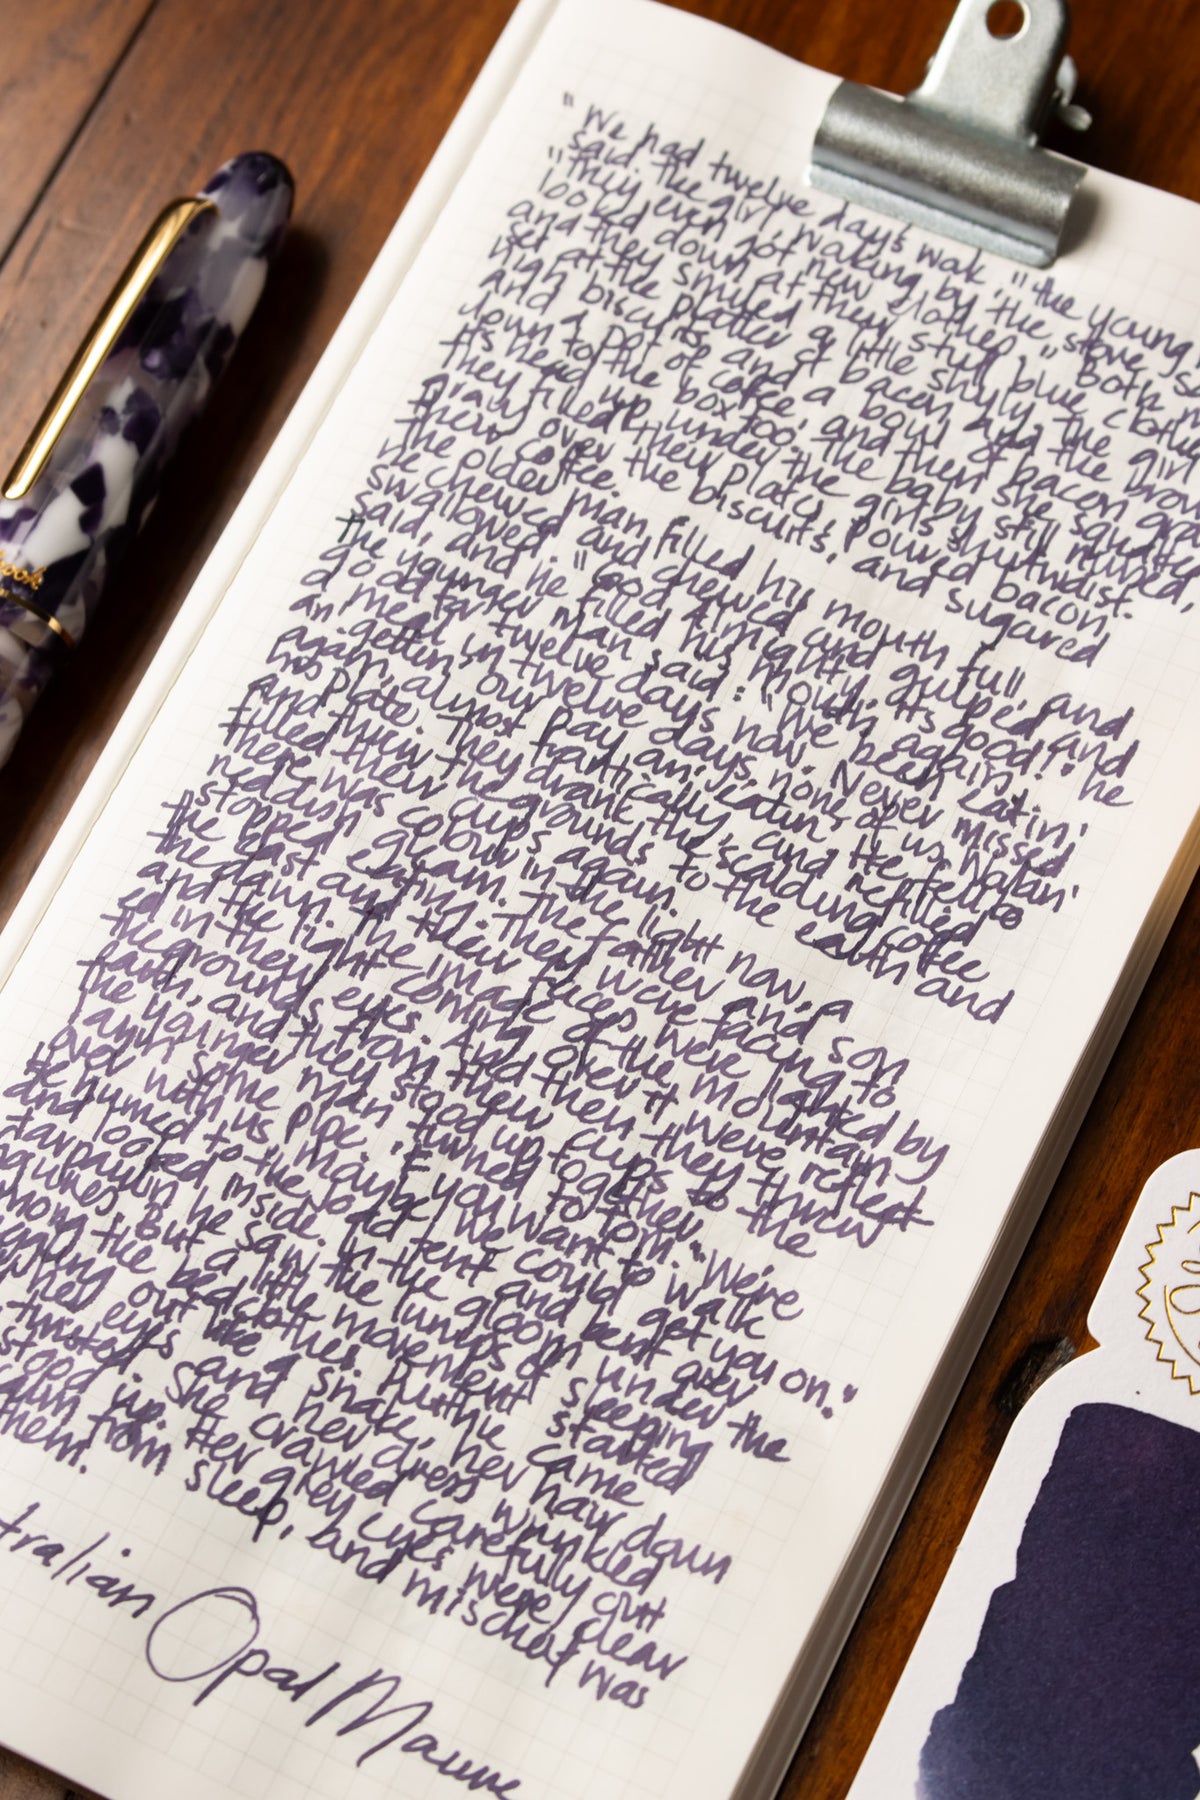 "We had twelve day's wok," the young
said the girl, waking by the stove. S
"They even got new clothes," Both m
looked down at their stiff blue clothe
and they smiled a little shyly. The girl
set at the platter of bacon, the brow
high biscuits, and a bowl of bacon gra
and a pot of coffee, and then she squatted
down to the box too. The baby still nursed,
its head up under the girl's shirtwaist.
They filled their plates, poured bacon
gravy over the biscuits, and sugared
their coffee.
The older man filled his mouth full, and
he chewed and chewed and gulped and
swallowed. "God almighty, its good!" he
said, and he filled his mouth again.
The younger man said: "We been eatin'
good for twelve days now. Never missed
a meal in twelve days, none of us.
an gettin' our pay an' eatin'. He fell to
again, almost frantically, and refilled
his plate. They drank the scalding coffee
and threw the grounds to the earth and
filled their cups again.
There was colour in the light now, a
reddish gleam. The father and son
stopped eating. They were facing to
the East and their faces were lighted by
the dawn. The image of the mountain
and the light coming over it were reflect
ed in their eyes. And then they threw
the grounds from their cups to the
earth, and they stood up together.
the younger man turned to Tom. "We're
layin' some pipe. if you want to walk
over with us maybe we could get you on."
and looked inside. In the gloom under the
tarpaulin he saw the lumps of sleeping
But a little movement started
among the bedclothes. Ruthie came
out like a snake, her hair down
her eyes and her dress wrinkled
twisted. She crawled carefully out
stood up. Her grey eyes were clear
calm from sleep, and mischief was
them.
tralian Opal Mauve